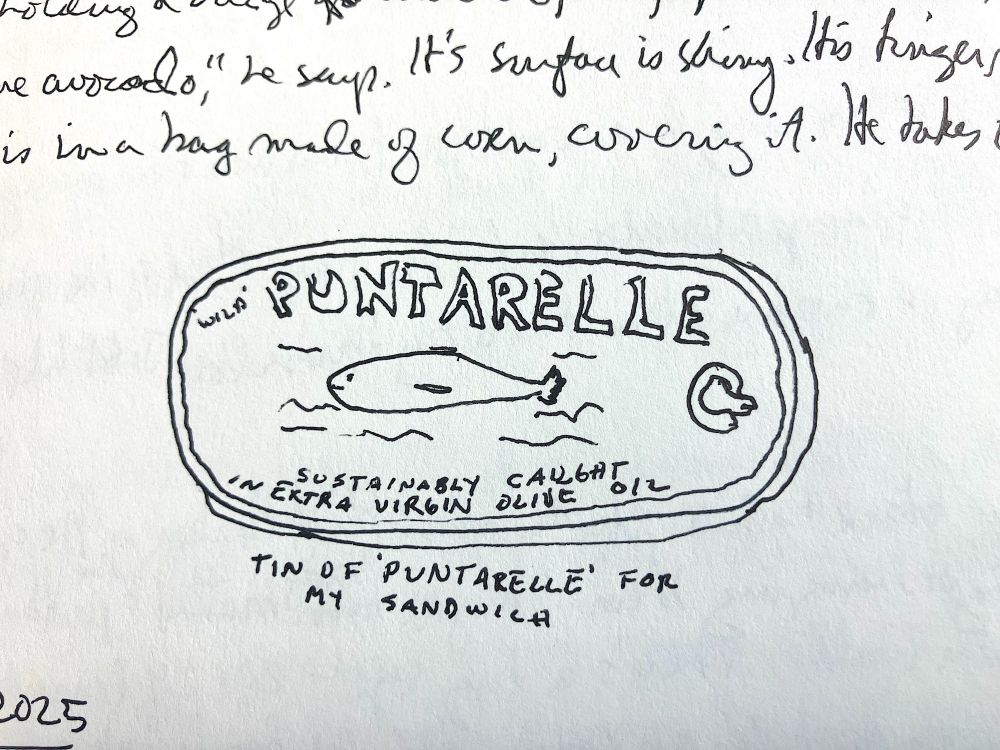 holding a
we avocado," he says. It's surface is shiny. His fingers,
is in a bag made of corn, covering it. He takes
'WILD' PUNTARELLE
SUSTAINABLY CAUGHT
IN EXTRA VIRGIN OLIVE OIL
TIN OF 'PUNTARELLE' FOR
MY SANDWICH
2025